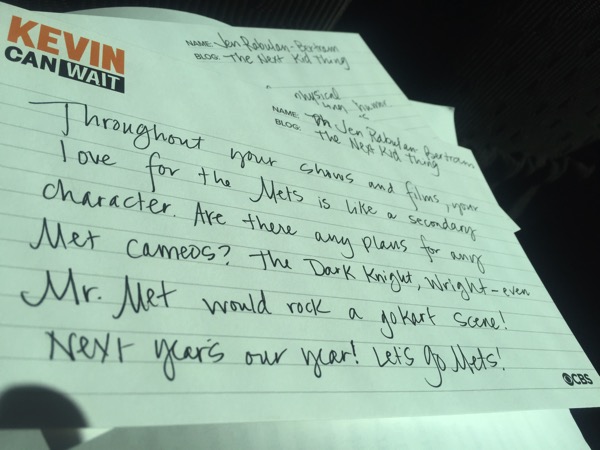 KEVIN
CAN WAIT
NAME: Jen Rabulan-Bertram
BLOG: The Next Kid Thing
physical
humor
NAME: Jen Rabulan Bertram
BLOG: The Next Kid Thing
Throughout your shows and films, your
love for the Mets is like a secondary
character. Are there any plans for any
Met cameos? The Dark Knight, Wright - even
Mr. Met would rock a gokart scene!
Next year's our year! Let's go Mets!
CBS